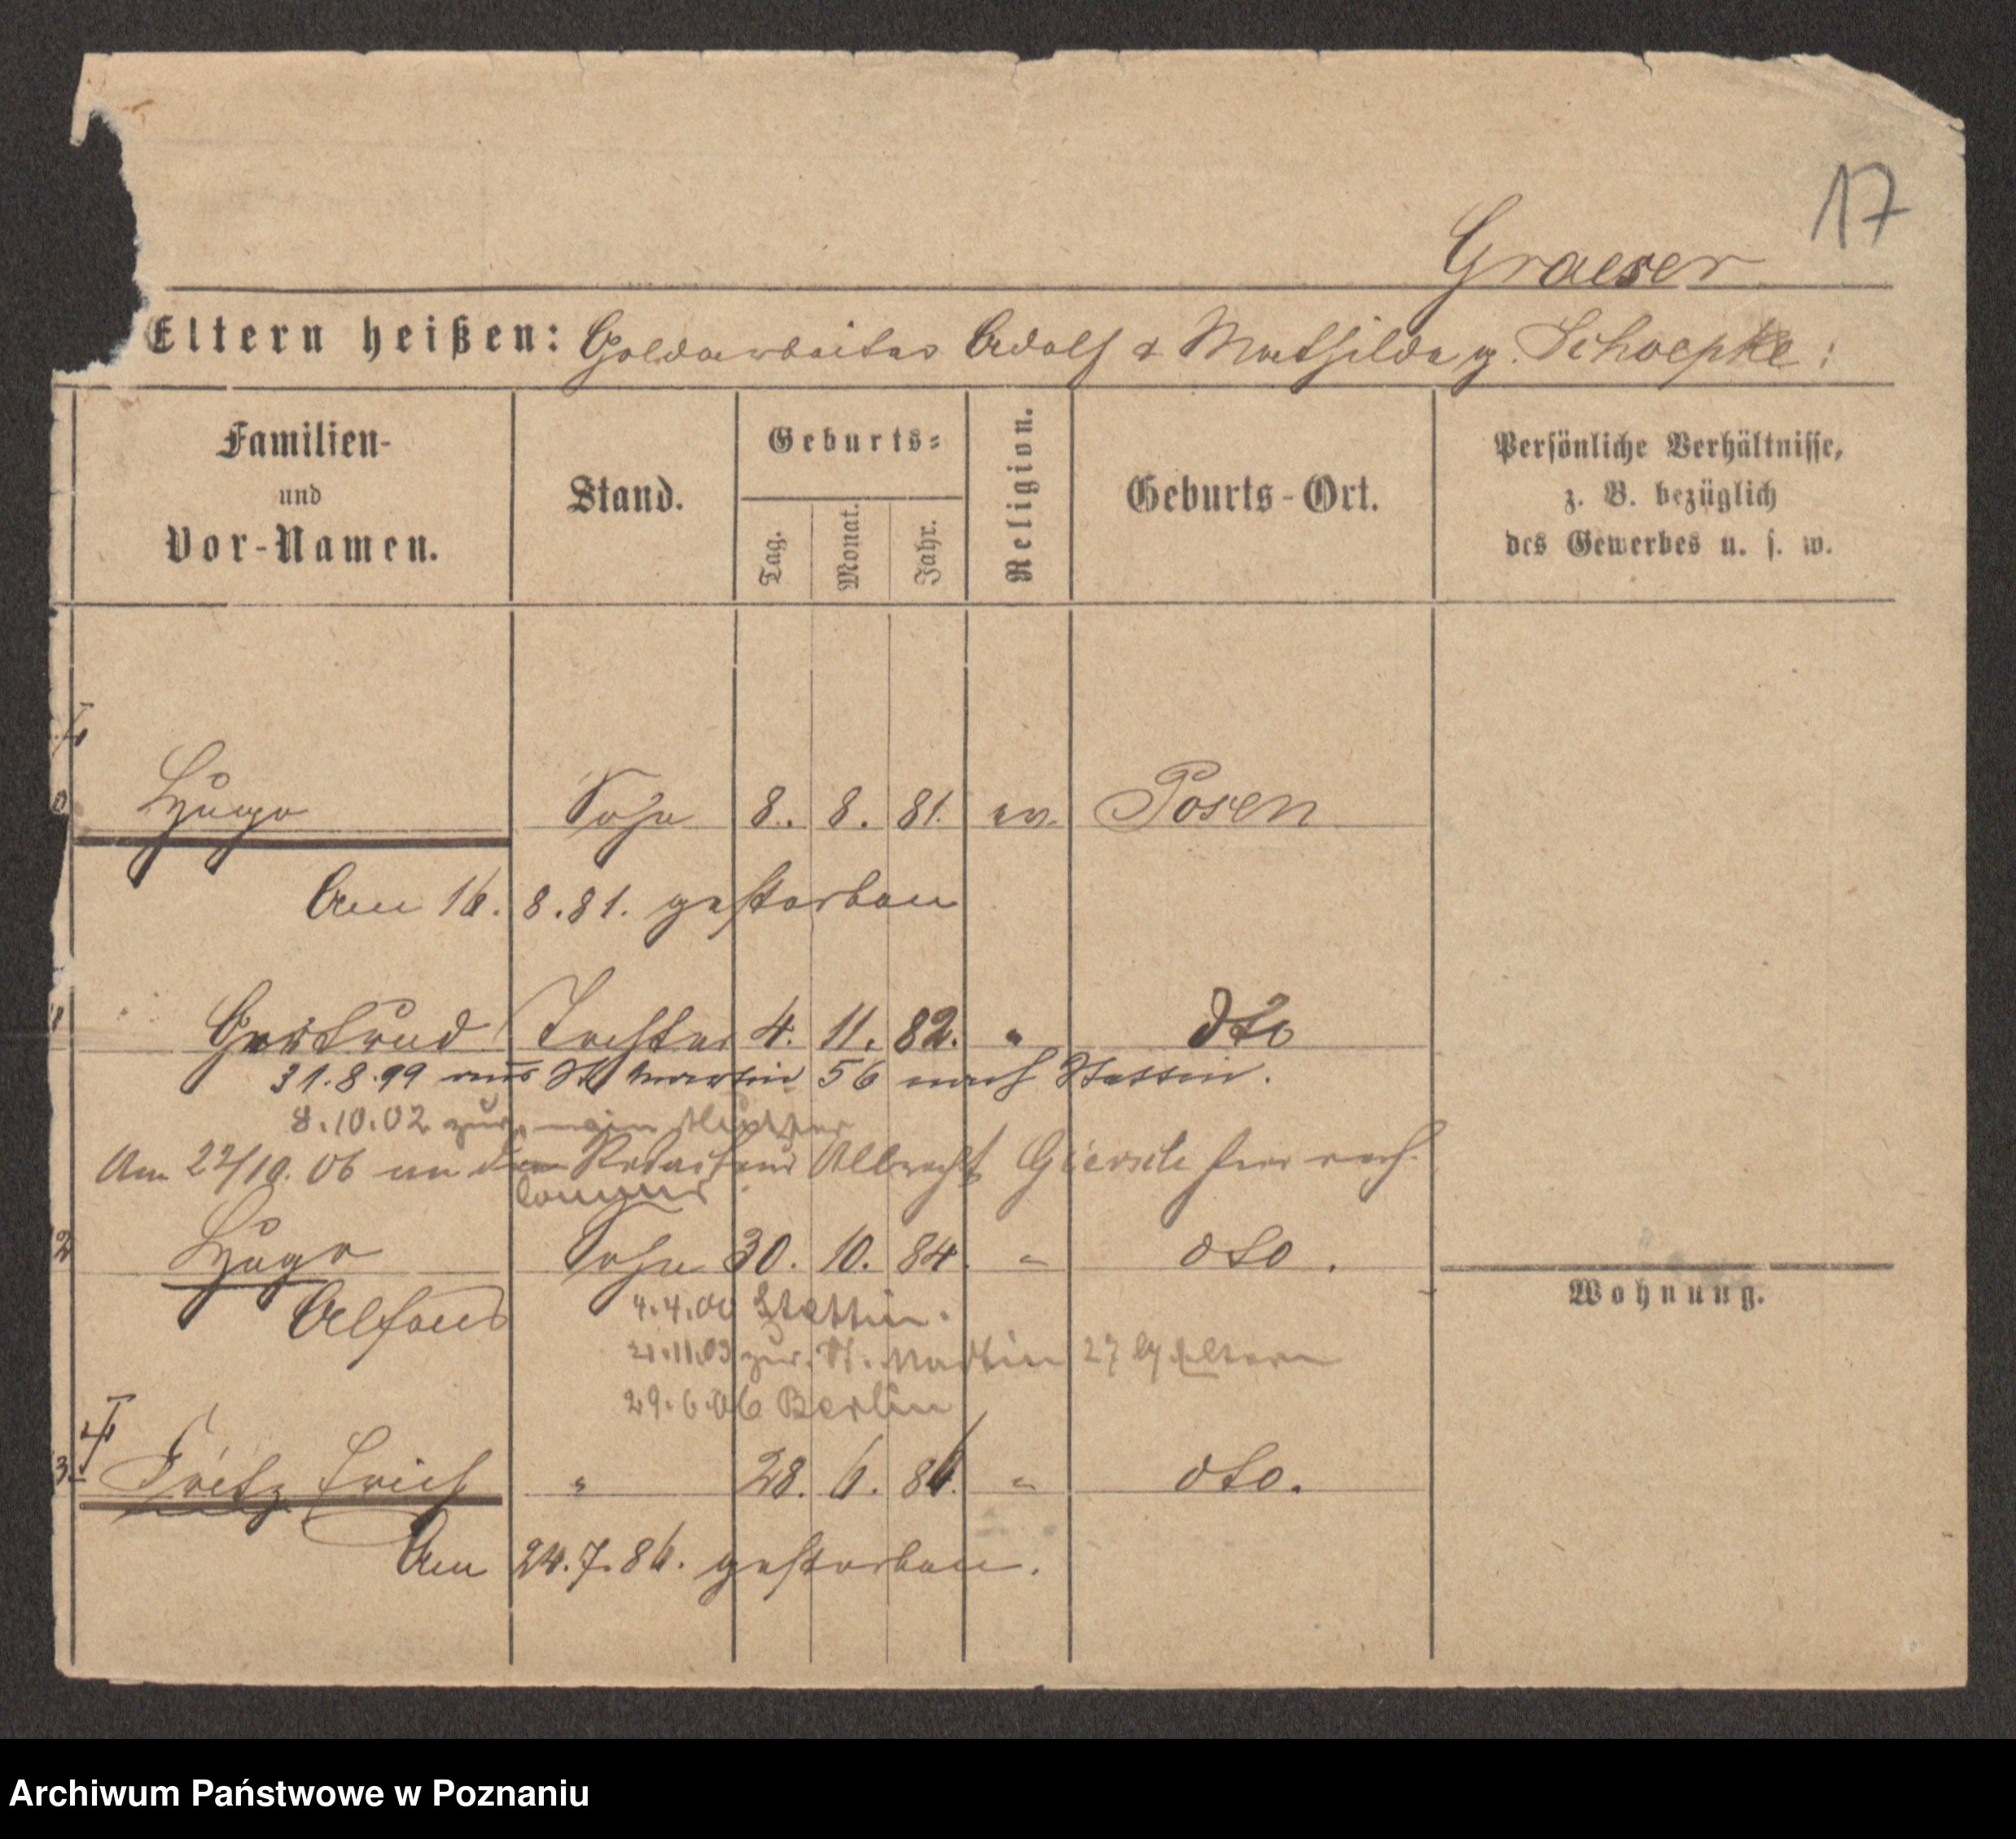 17
Graeser
Eltern heißen: Goldarbeiter Adolf & Mathilde g. Schoepke:
Familien-
und
Vor-Namen.
Stand.
Geburts-
Tag.
Monat.
Jahr.
Religion.
Geburts-Ort.
Persönliche Verhältnisse,
z. B. bezüglich
des Gewerbes u. s. w.
0 Hugo Sohn 8. 8. 81. ev. Posen
Am 16. 8. 81. gestorben
1 Gertrud Tochter 4. 11. 82. " dto
31.8.99 aus St Martin 56 nach Stettin.
8.10.02 zur
Am 22/10. 06 an den Redacteur Albrecht Giersch hier verh.
2 Hugo Sohn 30. 10. 84. " dto.
Alfons
4.4.00 Stettin.
21.11.03 zur. St. Martin 27 Eltern
29.6.06 Berlin
Wohnung.
3 Fritz Erich " 28. 6. 86. " dto.
Am 24.7.86. gestorben.
Archiwum Państwowe w Poznaniu